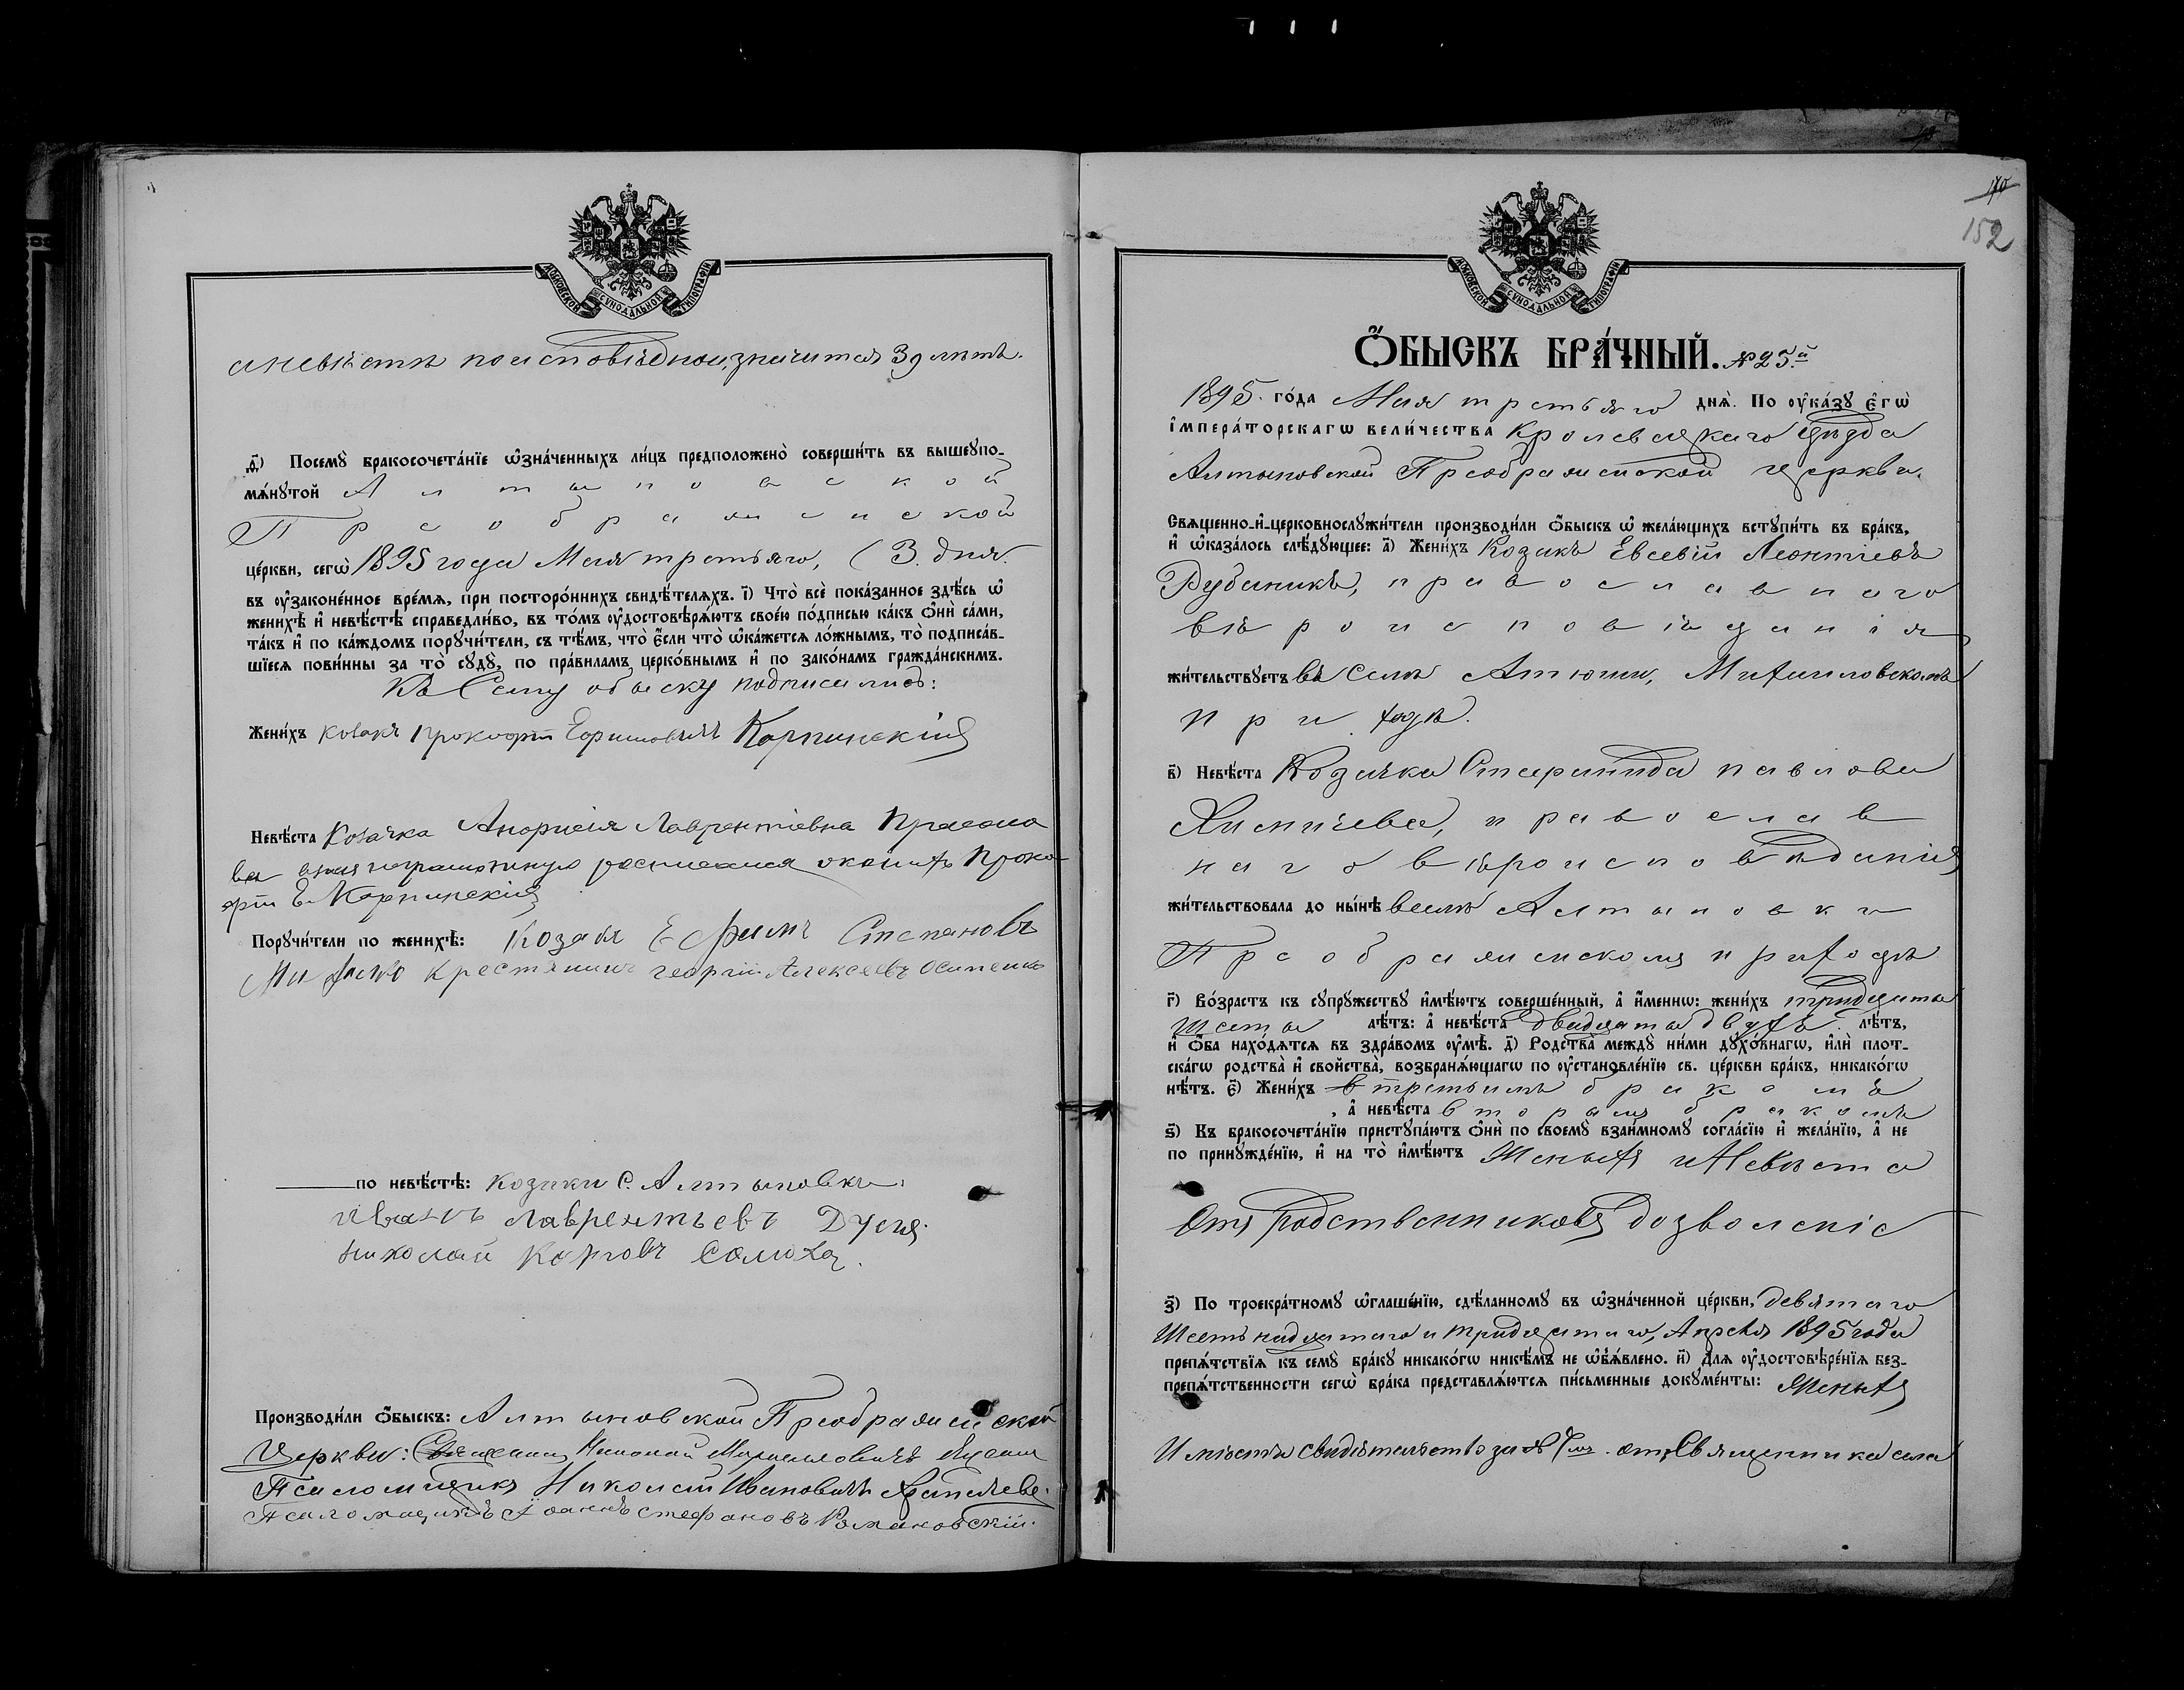 МОСКОВСКОЙ СѴНОДАЛЬНОЙ ТИПОГРАФІИ
а невѣста по исповѣдной, значится 39 лѣтъ.
д҃) Посемꙋ бракосочета́нїе ѡ҆зна́ченныхъ ли́цъ предположено̀ соверши́ть въ вышеꙋпо-
мѧ́нꙋтой Алтыновской
Преображенской
це́ркви, сегѡ̀ 1895 года Мая третьяго, (3. дня.
въ ᲂу҆законе́нное вре́мѧ, при посторо́ннихъ свидѣ́телѧхъ. і҃) Что̀ всѐ пока́занное здѣ́сь ѡ҆
женихѣ̀ и҆ невѣ́стѣ справедли́во, въ то́мъ ᲂу҆достовѣрѧ́ютъ свое́ю по́дписью ка́къ ѻ҆нѝ са́ми,
та́къ и҆ по ка́ждомъ порꙋчи́тели, съ тѣ́мъ, что̀ є҆́сли что̀ ѡ҆ка́жетсѧ ло́жнымъ, то̀ подписа́в-
шїесѧ пови́нны за то̀ сꙋдꙋ̀, по пра́виламъ церко́внымъ и҆ по зако́намъ гражда́нскимъ.
Къ Сему обыску подписались:
Жени́хъ козакъ Прокофій Ефимовичъ Карпинскій
Невѣ́ста Козачка Анфисія Лаврентіевна
неграмотную росписался женихъ Проко
фій Е. Карпинскій
Порꙋчи́тели по женихѣ̀: Козакъ Ефимъ Степановъ
Михно крестянинъ георгій Алексеевъ Осипенко
по невѣ́стѣ: козаки С. Алтыновки:
іванъ лаврентьевъ Дусь
николай Карповъ Солоха
Производи́ли ѻ҆́быскъ: Алтыновской Преображенской
Церкви: Николай
Псаломщикъ Николай Ивановичъ
Псаломщикъ Іоаннъ Стефановъ Романовский.
170
152
МОСКОВСКОЙ СѴНОДАЛЬНОЙ ТИПОГРАФІИ
Ѻ҆́БЫСКЪ БРА́ЧНЫЙ. № 25й
1895. го́да Мая третьяго днѧ̀. По ᲂу҆ка́зꙋ є҆гѡ̀
і҆мпера́торскагѡ вели́чества Кролевецкаго уѣзда
Алтыновской Преображенской церкви.
Свѧщенно-и҆-церковнослꙋжи́тели производи́ли ѻ҆́быскъ ѡ҆ жела́ющихъ встꙋпи́ть въ бра́къ,
и҆ ѡ҆каза́лось слѣ́дꙋющее: а҃) Жени́хъ Козакъ Евсевій Леонтіевъ
Рубаникъ, православнаго
вѣроисповѣданія
жи́тельствꙋетъ въ селѣ Атюши, Михаиловскомъ
приходѣ.
в҃) Невѣ́ста Козачка Стефанида павлова
православ
наго вѣроисповѣданія
жи́тельствовала до ны́нѣ въ селѣ Алтыновки
Преображенскомъ приходѣ
г҃) Во́зрастъ къ сꙋпрꙋ́жествꙋ и҆мѣ́ютъ соверше́нный, а҆ и҆́меннѡ: жени́хъ тридцати
шести лѣ́тъ: а҆ невѣ́ста двадцати двухъ. лѣ́тъ,
и҆ ѻ҆́ба нахо́дѧтсѧ въ здра́вомъ ᲂу҆мѣ̀. д҃) Родства̀ междꙋ̀ ни́ми дꙋхо́внагѡ, и҆лѝ плот-
ска́гѡ родства̀ и҆ свойства̀, возбранѧ́ющагѡ по ᲂу҆становле́нїю св. це́ркви бра́къ, никако́гѡ
нѣ́тъ. є҃) Жени́хъ третьимъ бракомъ
, а҆ невѣ́ста вторымъ бракомъ
ѕ҃) Къ бракосочета́нїю пристꙋпа́ютъ ѻ҆нѝ по своемꙋ̀ взаи́мномꙋ согла́сїю и҆ жела́нїю, а҆ не
по принꙋжде́нїю, и҆ на то̀ и҆мѣ́ютъ Женихъ и Невѣста
Отъ Родственниковъ дозволеніе
з҃) По троекра́тномꙋ ѡ҆глаше́нїю, сдѣ́ланномꙋ въ ѡ҆зна́ченной це́ркви, девятаго
Шестнадцатаго и тридцатаго, Апрѣля 1895 года
препѧ́тствїѧ къ семꙋ̀ бра́кꙋ никако́гѡ никѣ́мъ не ѡ҆бъѧ́влено. и҃) Для ᲂу҆достовѣре́нїѧ без-
препѧ́тственности сегѡ̀ бра́ка представлѧ́ютсѧ пи́сьменные докꙋме́нты: Женихъ
Имѣетъ свидѣтельство за № отъ Священника села